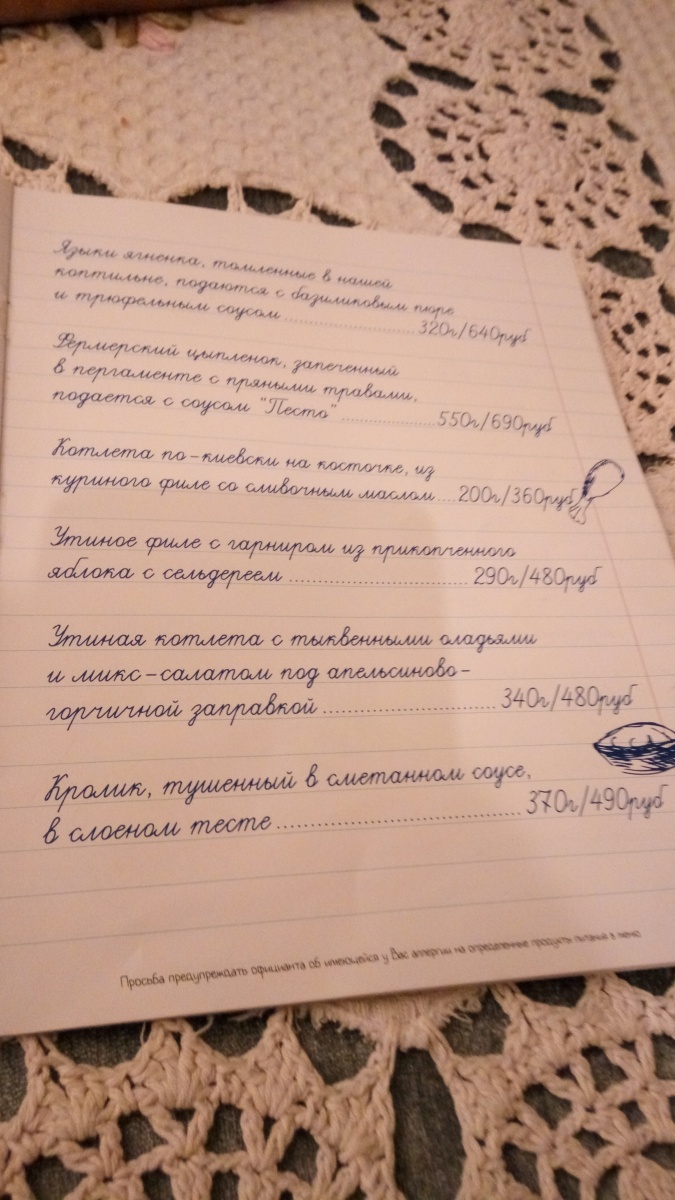 Языки ягненка, томленные в нашей
коптильне, подаются с базиликовым пюре
и трюфельным соусом ........................ 320г/640руб
Фермерский цыпленок, запеченный
в пергаменте с пряными травами,
подается с соусом "Песто" ................ 550г/690руб
Котлета по-киевски на косточке, из
куриного филе со сливочным маслом .... 200г/360руб
Утиное филе с гарниром из прикопченного
яблока с сельдереем ............................... 290г/480руб
Утиная котлета с тыквенными оладьями
и микс-салатом под апельсиново-
горчичной заправкой .............................. 340г/480руб
Кролик, тушенный в сметанном соусе,
в слоеном тесте ........................................ 370г/490руб
Просьба предупреждать официанта об имеющейся у Вас аллергии на определенные продукты питания в меню